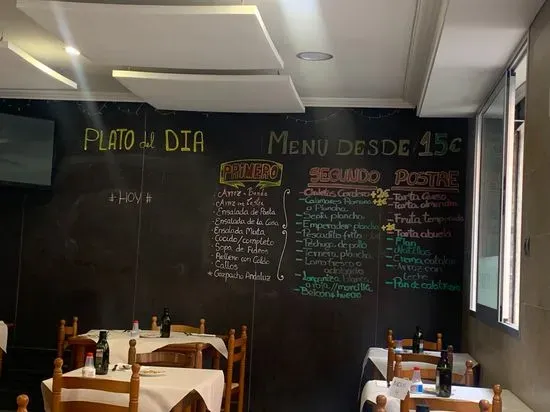 PLATO del DIA
MENU DESDE 15€
#HOY#
PRIMERO
- Arroz a Banda
- Ensalada de Pasta
- Ensalada de la Casa
- Ensalada Mixta
- Cocido completo
- Sopa de Fideos
- Relleno con Caldo
- Callos
* Gazpacho Andaluz
SEGUNDO
- Chuletas Cordero +2€
- Calamares Romana
o Plancha
- Sepia plancha
- Emperador plancha
- Pescadito frito
- Pechuga de pollo
- Ternera plancha
- Lomo fresco o
adobado
- Longaniza blanca
o roja // morcilla
- Bacon + huevo
POSTRE
- Tarta Queso
- Tarta almendra
- Fruta temporada
- Tarta abuela
- Flan
- Natillas
- Crema catalana
- Arroz con
Leche
- Pan de calatrava